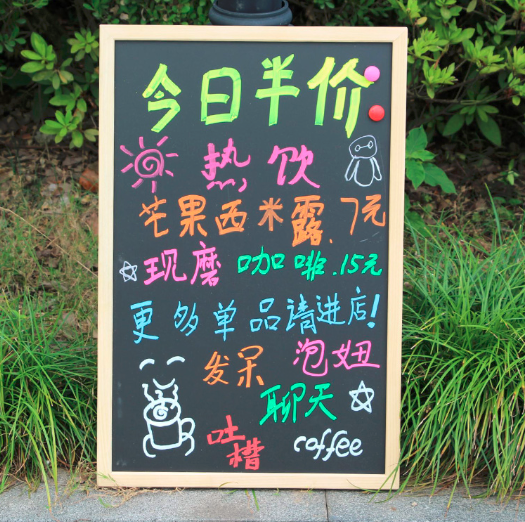 今日半价
热饮
芒果西米露.7元
现磨咖啡.15元
更多单品请进店!
发呆 泡妞
聊天
吐槽 coffee